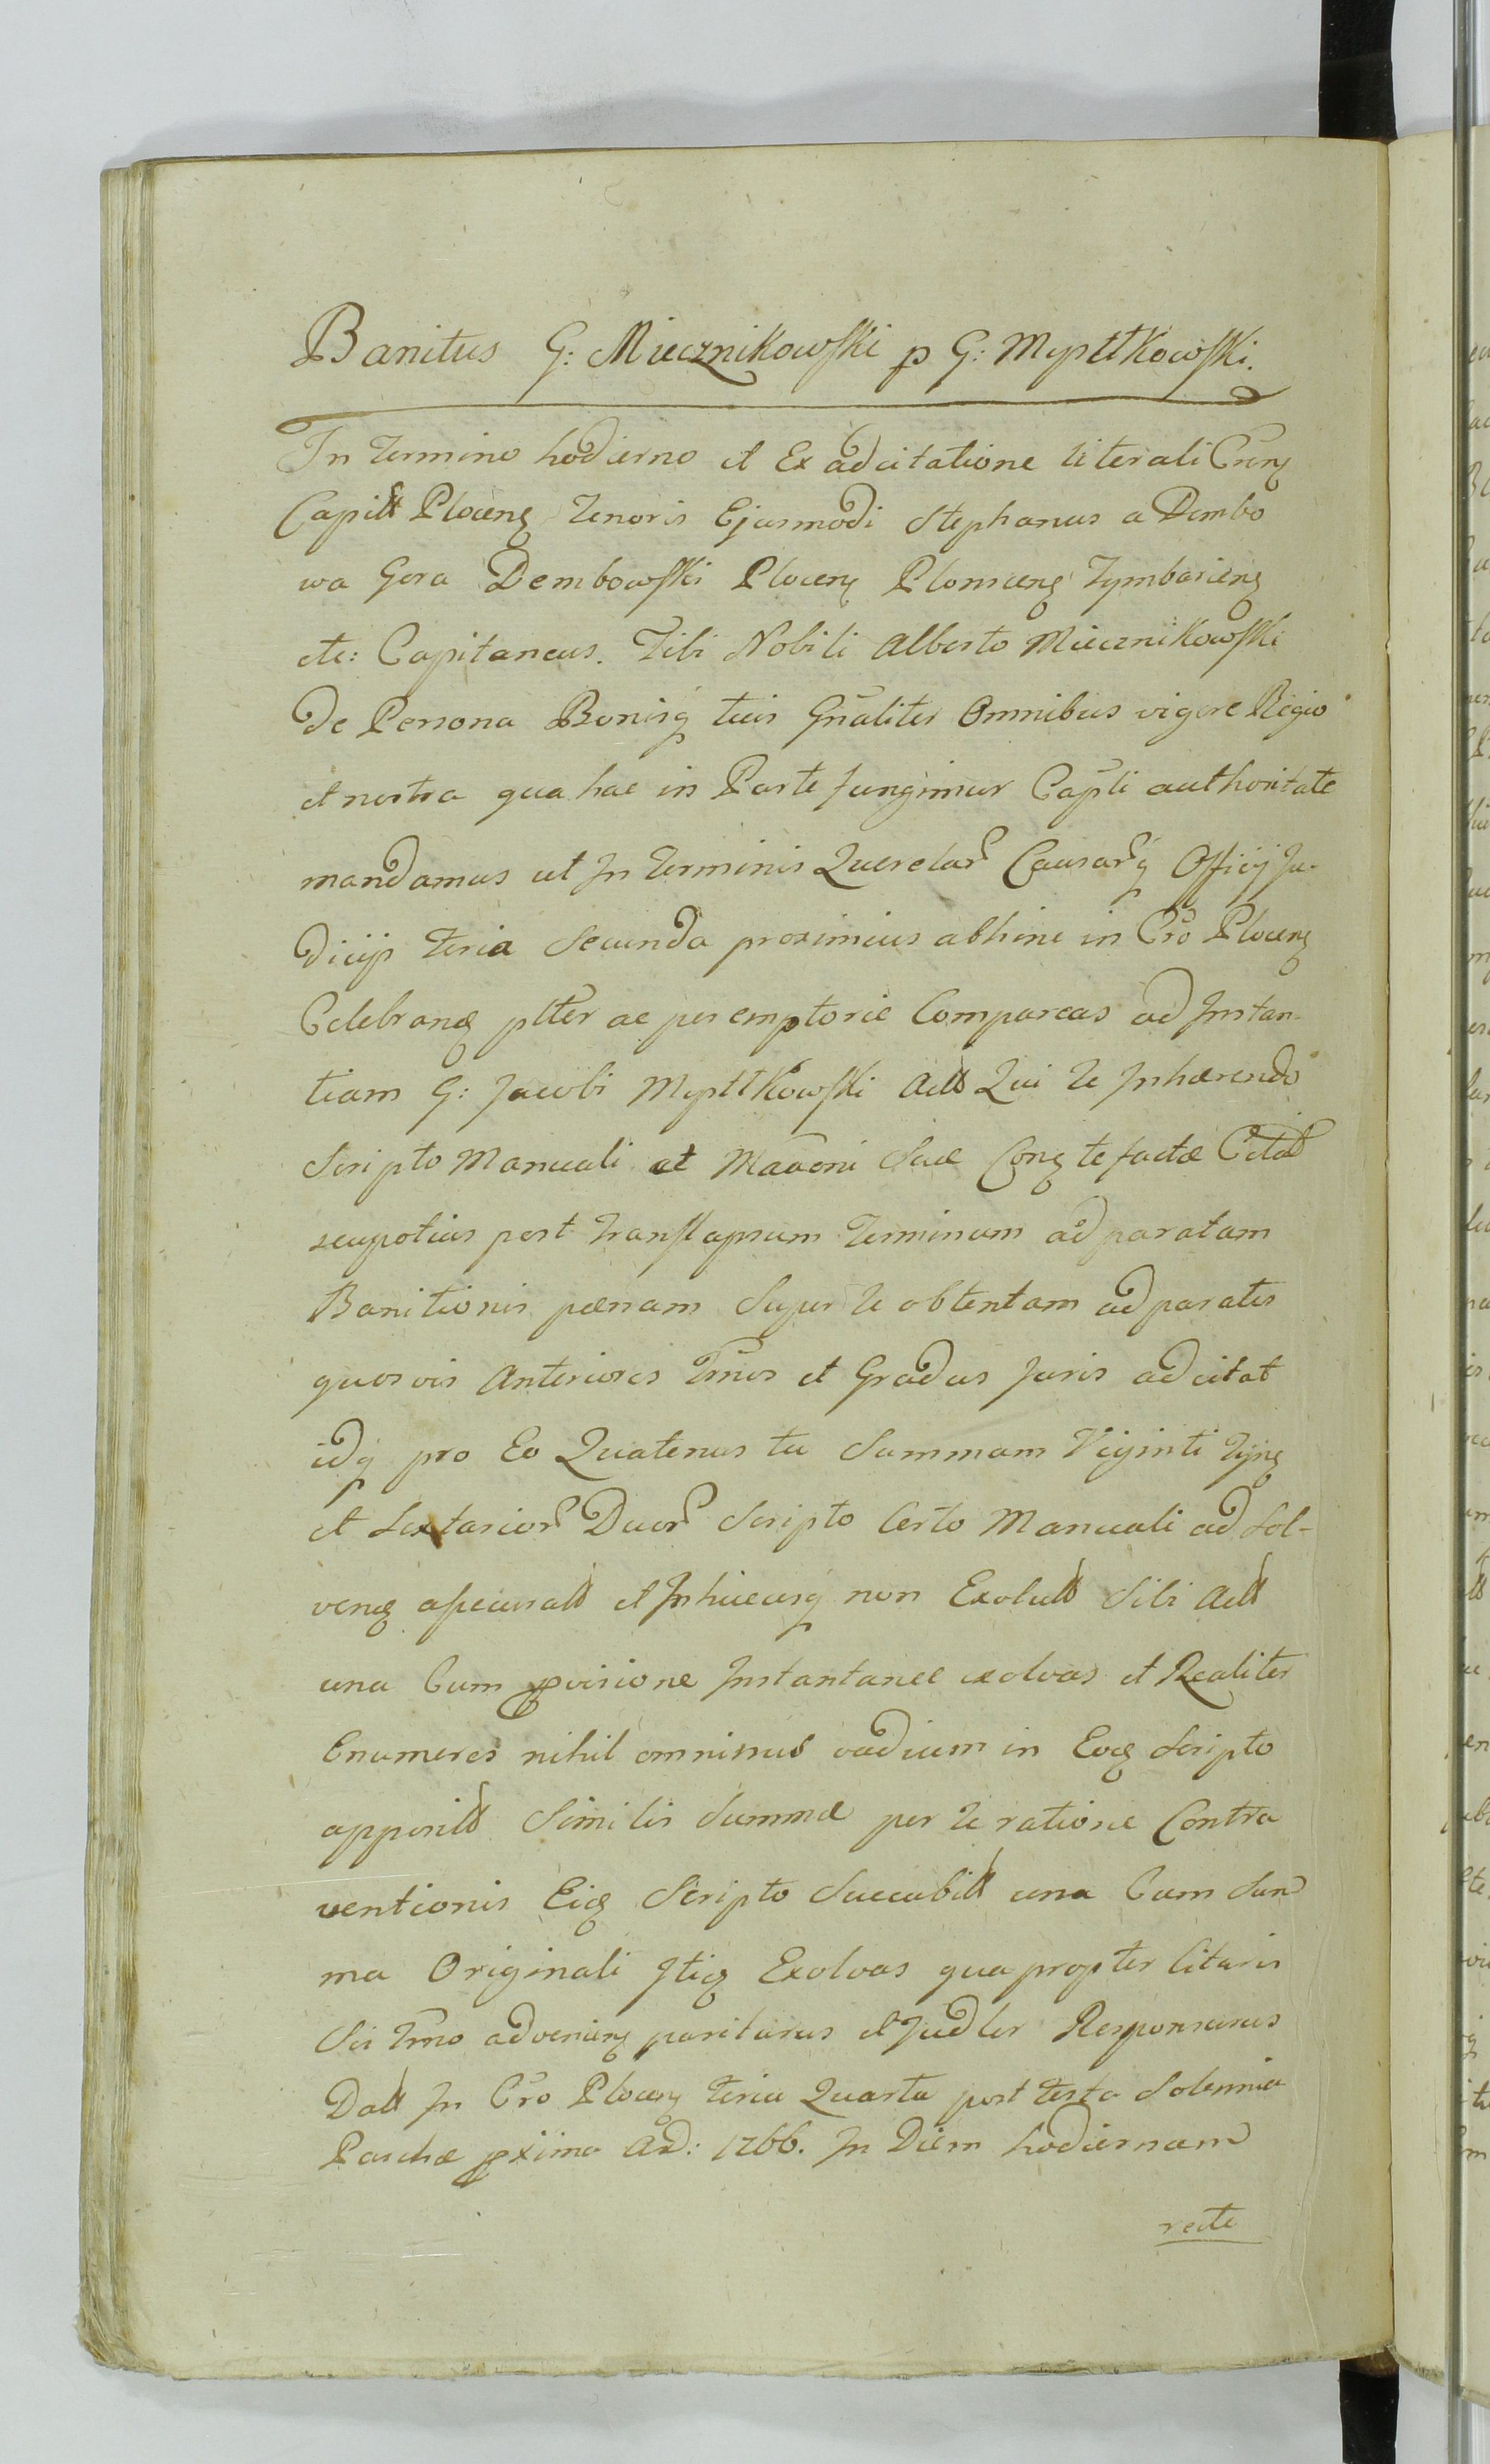 Banitus G: Miecznikowski p G: Mysttkowski.
In Termino hodierno et Ex adcitatione literali Crens
Capitt Plocens Tenoris Ejusmodi Stephanus a Dembo
wa Gora Dembowski Plocens Plonscens Tymbariens
etc: Capitaneus. Tibi Nobili Alberto Miecznikowski
De Persona Bonisq tuis Gnaliter Omnibus vigore Regio
et nostra qua hac in Parte fungimur Capli authoritate
mandamus ut In Terminis Querelar Causarq Officij Ju-
dicijs feria Secunda proximius abhinc in Cro Plocens
Celebrand ptter ac peremptorie Compareas ad Instan-
tiam G: Jacobi Mysttkowski Actt Qui Te Inhærendo
Scripto Manuali et Maaoni Suæ Cong te factæ Citat
seupotius post Translapsum Terminum ad paratam
Banitionis pænam Super Te obtentam ad paratis
quosvis Anteriores Tmos et Gradus Juris adcitat
idq pro Eo Quatenus tu Summam Viginti Tynf
et Sextarior Duor Scripto Certo Manuali ad Sol-
vend assecuratt et Inhucusq non Exolutt Sibi Actt
una Cum pvisione Instantanee exolvas et Realiter
Enumeres nihil omnimus vadium in Eod Scripto
appositt Similis Summæ per Te ratione Contra
ventionis Eid Scripto Succubitt una Cum Sum
ma Originali Itid Exolvas qua propter Citaris
Sis Tmo adveniens pariturus et Judler Responsurus
Datt In Cro Plocens feria Quarta post festa Solennia
Paschæ pxima AD: 1766. In Diem hodiernam
recte